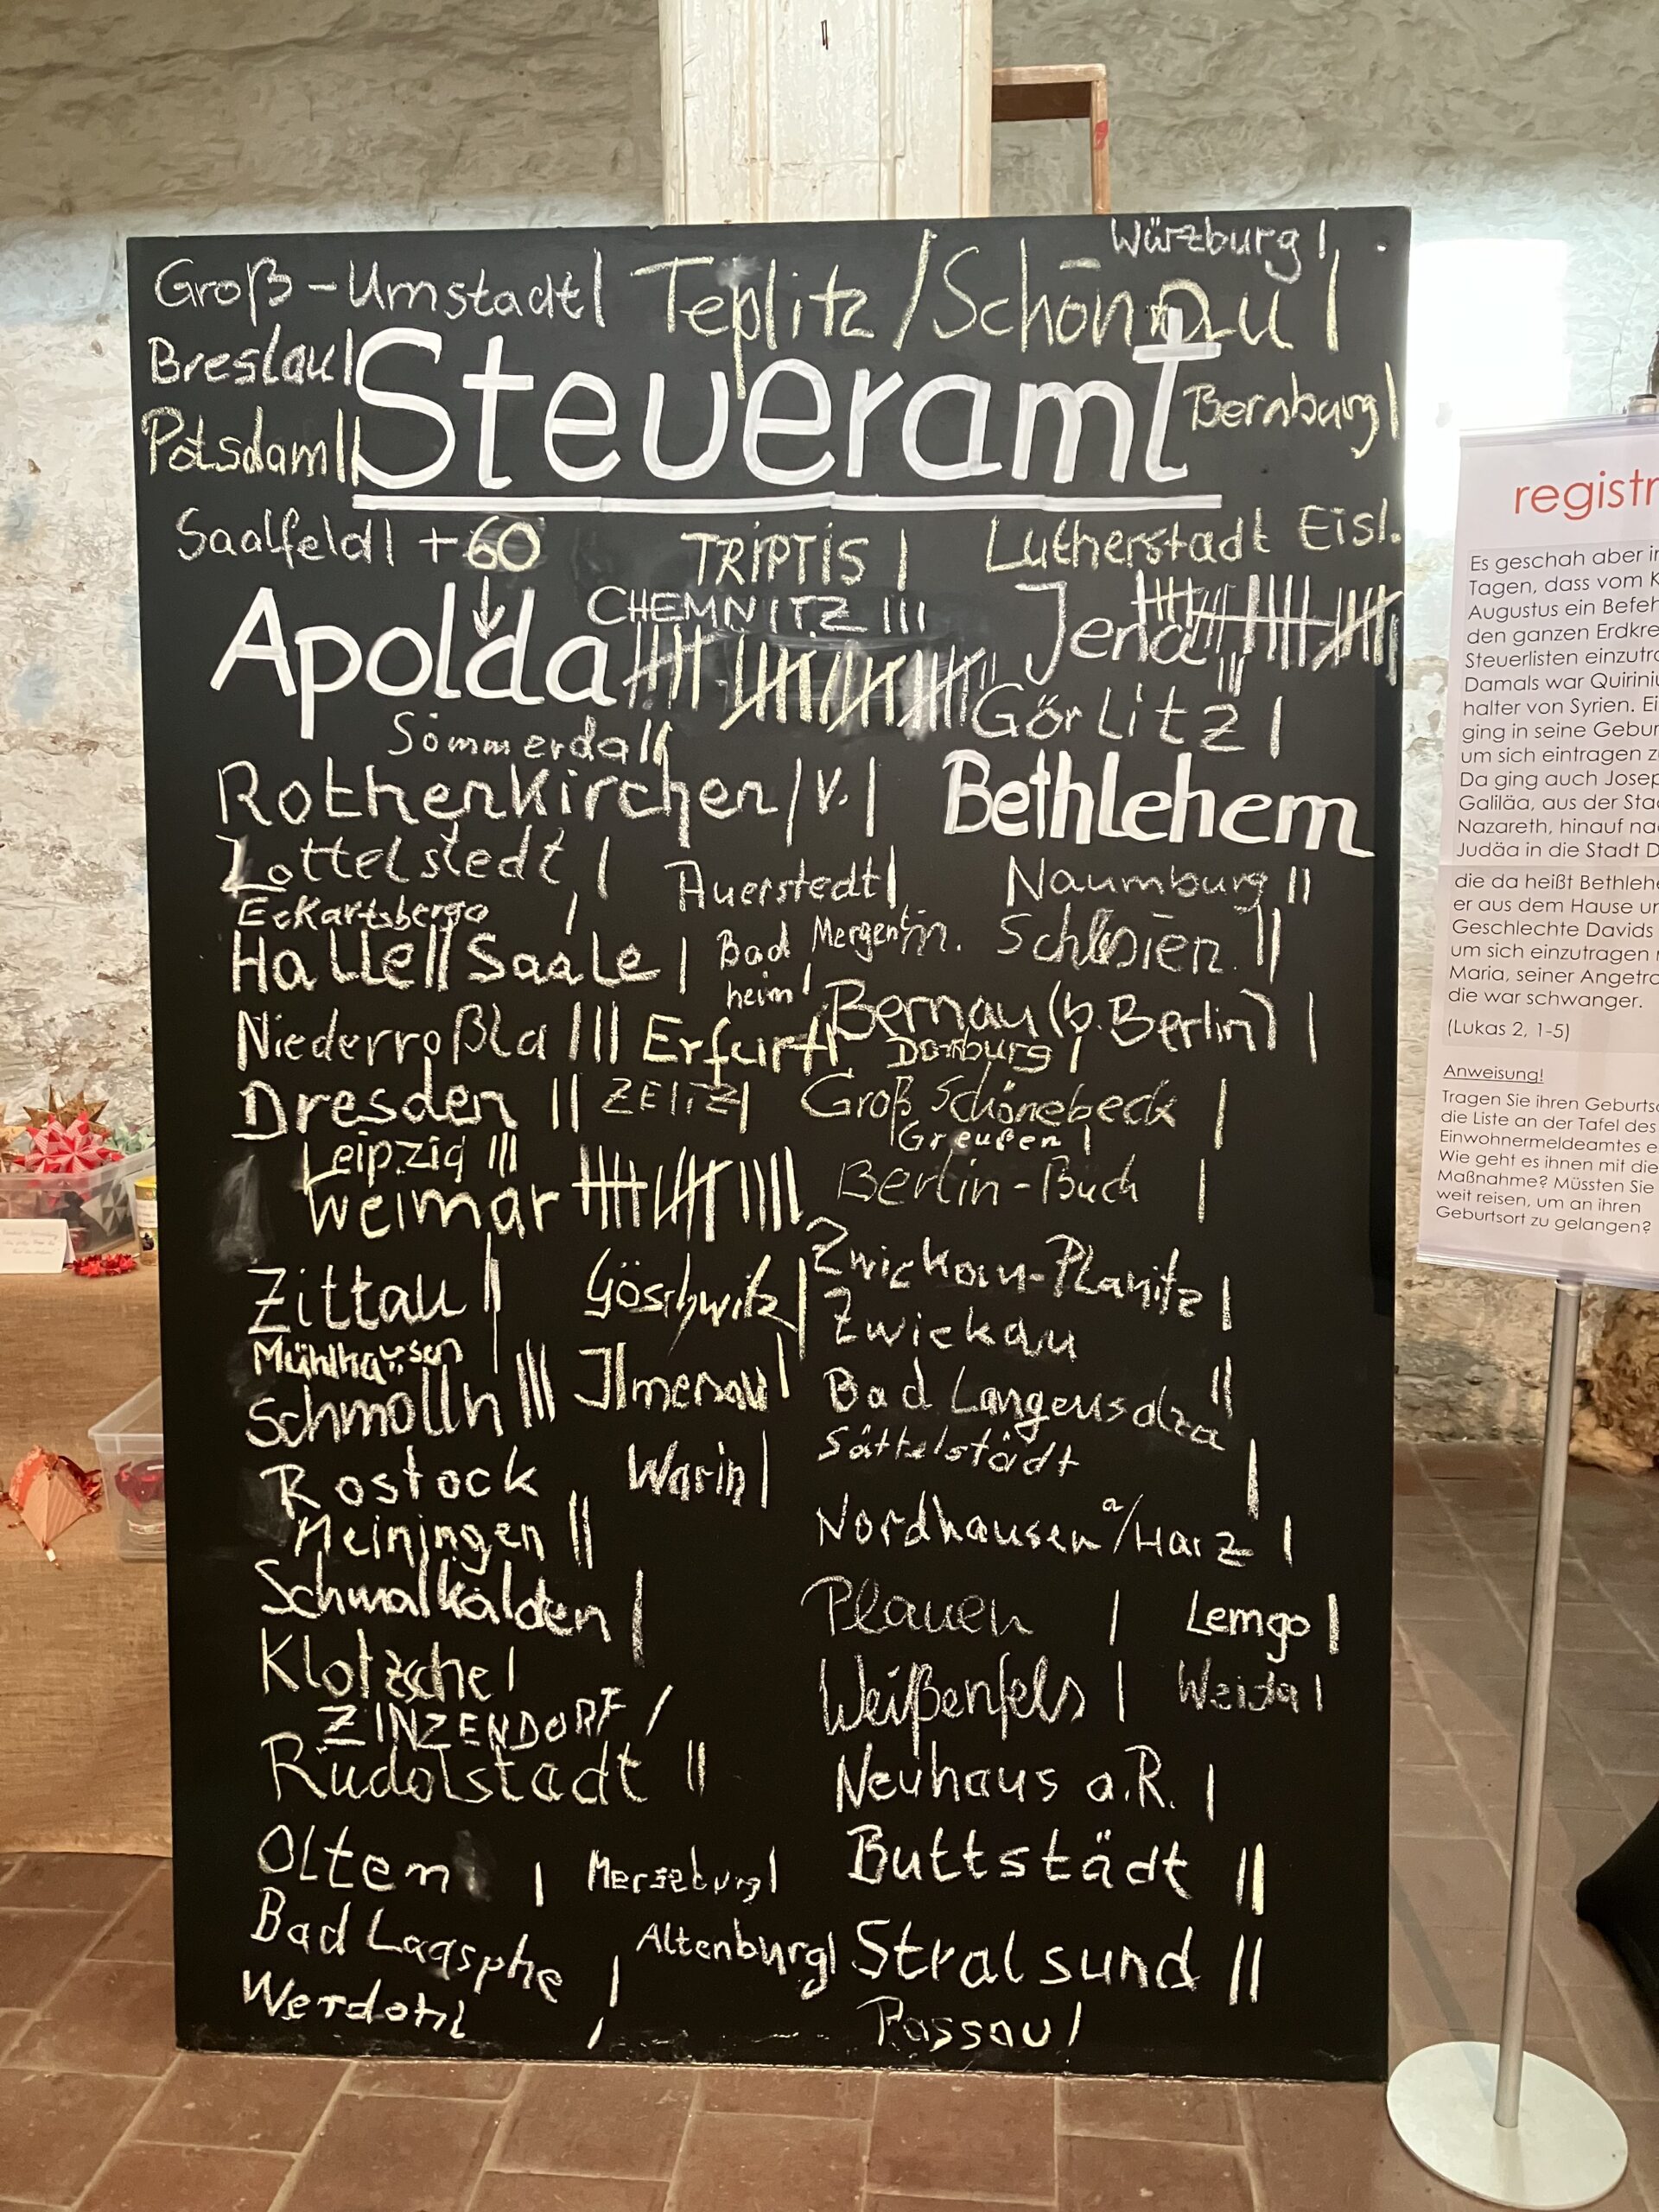 Würzburg |
Groß-Umstadt | Teplitz/Schönau |
Breslau |
Steueramt
Bernburg |
Potsdam ||
Saalfeld | +60 TRIPTIS | Lutherstadt Eisl.
CHEMNITZ |||
Apolda
Jena
Sömmerda || Görlitz |
Rothenkirchen/V. | Bethlehem
Zottelstedt | Auerstedt | Naumburg ||
Eckartsberga |
Halle||Saale | Bad Mergent- Schlesien ||
heim |
Niederroßla ||| Erfurt Bernau (b. Berlin) |
Dornburg |
Dresden || ZEITZ | Groß Schönebeck |
Greußen |
Leipzig ||| Berlin-Buch |
Weimar
Zittau Göschwitz | Zwickau-Planitz |
Zwickau
Mühlhausen
Schmölln ||| Ilmenau | Bad Langensalza ||
Sättelstädt |
Rostock Warin |
Meiningen || Nordhausen a/Harz |
Schmalkalden | Plauen | Lemgo |
Klotzsche | Weißenfels | Weida |
ZINZENDORF /
Rudolstadt || Neuhaus a.R. |
Olten | Merseburg | Buttstädt ||
Bad Laasphe | Altenburg | Stralsund ||
Werdohl / Passau /
registr
Es geschah aber in
Tagen, dass vom K
Augustus ein Befeh
den ganzen Erdkre
Steuerlisten einzutra
Damals war Quiriniu
halter von Syrien. Ei
ging in seine Gebur
um sich eintragen z
Da ging auch Josep
Galiläa, aus der Sta
Nazareth, hinauf na
Judäa in die Stadt D
die da heißt Bethlehe
er aus dem Hause un
Geschlechte Davids
um sich einzutragen
Maria, seiner Angetra
die war schwanger.
(Lukas 2, 1-5)
Anweisung!
Tragen Sie ihren Geburtso
die Liste an der Tafel des
Einwohnermeldeamtes e
Wie geht es ihnen mit die
Maßnahme? Müssten Sie
weit reisen, um an ihren
Geburtsort zu gelangen?